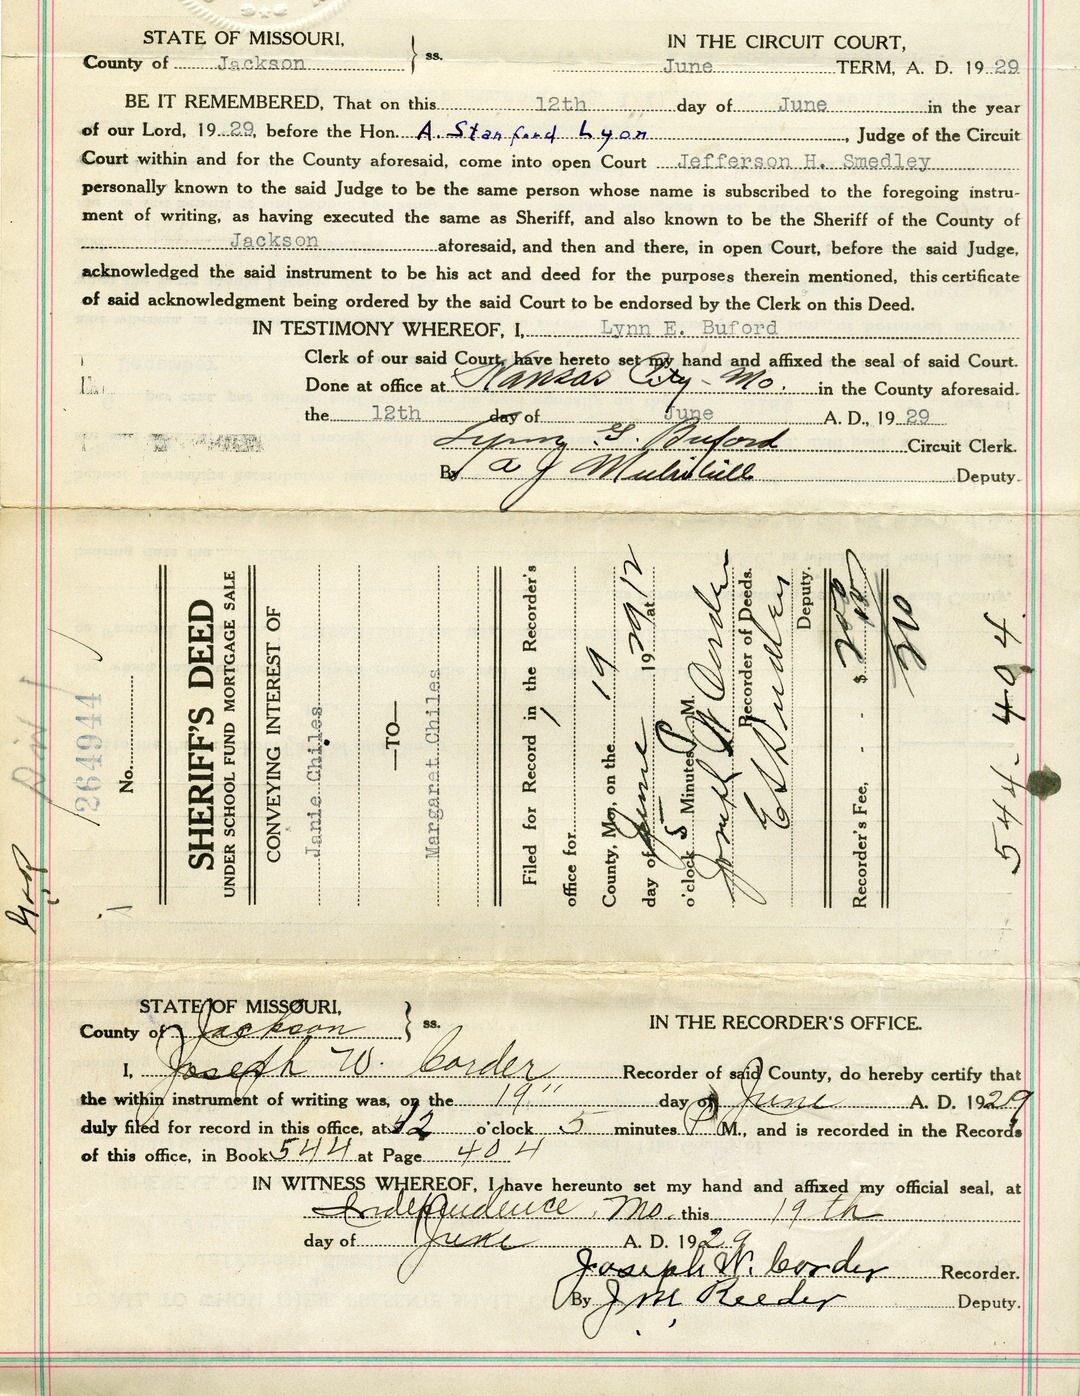 STATE OF MISSOURI,
County of Jackson } ss.
IN THE CIRCUIT COURT,
June TERM, A. D. 1929
BE IT REMEMBERED, That on this 12th day of June in the year
of our Lord, 1929, before the Hon. A. Stanford Lyon, Judge of the Circuit
Court within and for the County aforesaid, come into open Court Jefferson H. Smedley
personally known to the said Judge to be the same person whose name is subscribed to the foregoing instru-
ment of writing, as having executed the same as Sheriff, and also known to be the Sheriff of the County of
Jackson aforesaid, and then and there, in open Court, before the said Judge,
acknowledged the said instrument to be his act and deed for the purposes therein mentioned, this certificate
of said acknowledgment being ordered by the said Court to be endorsed by the Clerk on this Deed.
IN TESTIMONY WHEREOF, I, Lynn E. Buford
Clerk of our said Court, have hereto set my hand and affixed the seal of said Court.
Done at office at Kansas City - Mo. in the County aforesaid.
the 12th day of June A. D., 1929
Buford Circuit Clerk.
By A J Deputy.
264944
No.
SHERIFF'S DEED
UNDER SCHOOL FUND MORTGAGE SALE
CONVEYING INTEREST OF
Janie Chiles
—TO—
Margaret Chiles
Filed for Record in the Recorder's
office for
County, Mo., on the 19
day of June 1929 at 12
o'clock 5 Minutes P M.
Joseph W Corder
Recorder of Deeds.
E S Dudley
Deputy.
Recorder's Fee, - - $ 2
210
544 - 404
STATE OF MISSOURI,
County of Jackson } ss.
IN THE RECORDER'S OFFICE.
I, Joseph W. Corder Recorder of said County, do hereby certify that
the within instrument of writing was, on the 19" day of June A. D. 1929
duly filed for record in this office, at 12 o'clock 5 minutes P M., and is recorded in the Records
of this office, in Book 544 at Page 404
IN WITNESS WHEREOF, I have hereunto set my hand and affixed my official seal, at
Independence, Mo. this 19th
day of June A. D. 1929
Joseph W. Corder Recorder.
By J M Reeder Deputy.